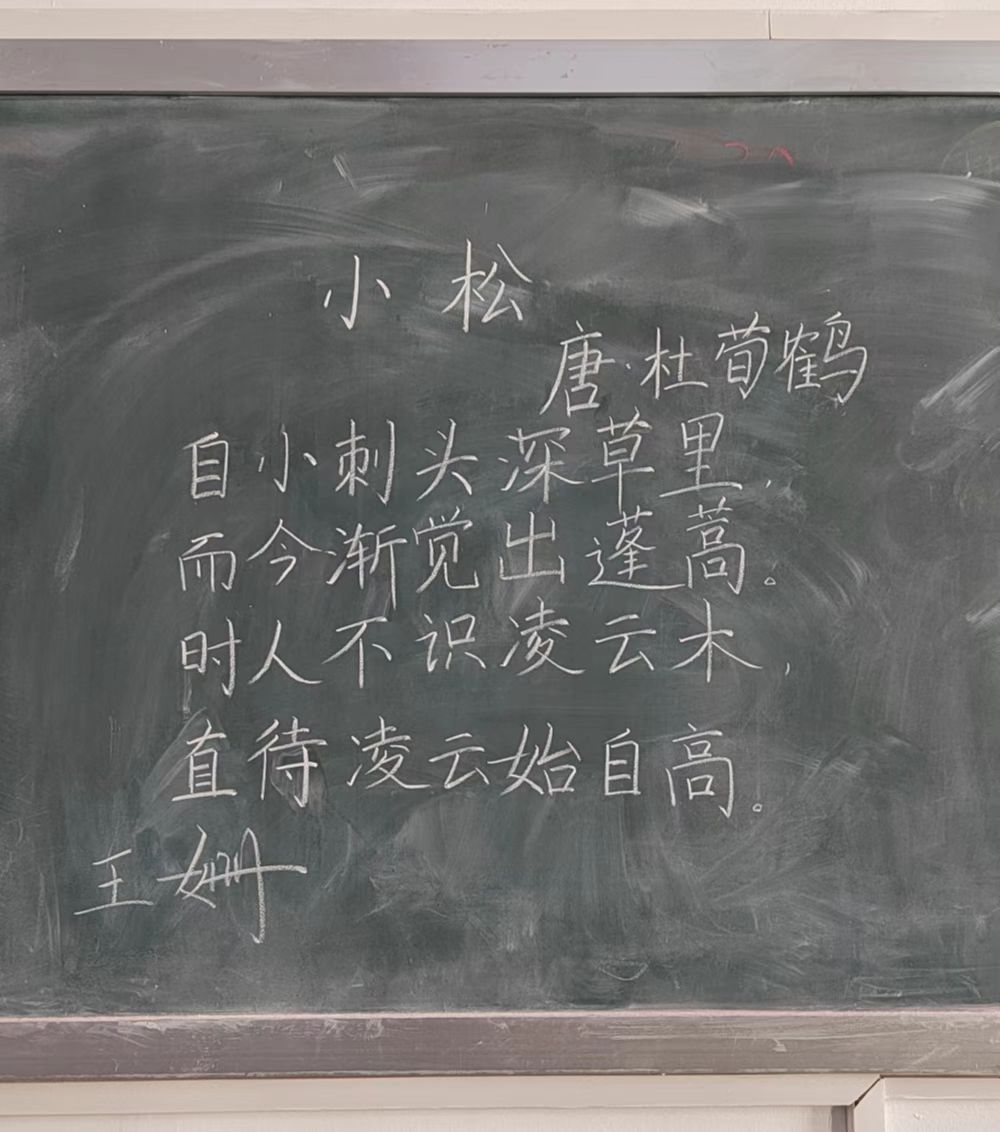 小松
唐·杜荀鹤
自小刺头深草里,
而今渐觉出蓬蒿。
时人不识凌云木,
直待凌云始自高。
王姗